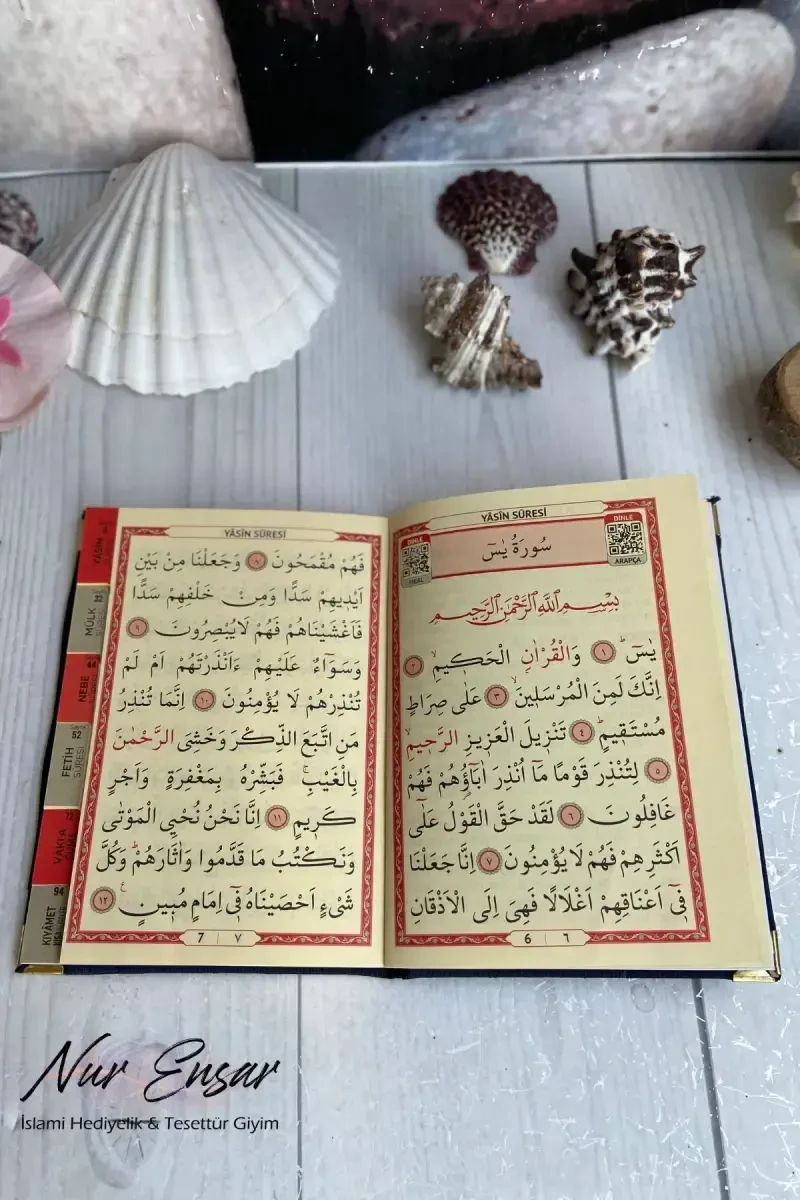 YÂSÎN SÛRESİ
DİNLE
MEAL
سُورَةُ يٰسٓ
DİNLE
ARAPÇA
بِسْمِ اللّٰهِ الرَّحْمٰنِ الرَّحِيمِ
يٰسٓۜ ﴿١﴾ وَالْقُرْاٰنِ الْحَكِيمِۙ ﴿٢﴾
اِنَّكَ لَمِنَ الْمُرْسَلِينَۙ ﴿٣﴾ عَلٰى صِرَاطٍ
مُسْتَقِيمٍۜ ﴿٤﴾ تَنْزِيلَ الْعَزِيزِ الرَّحِيمِۙ
﴿٥﴾ لِتُنْذِرَ قَوْمًا مَٓا اُنْذِرَ اٰبَٓاؤُ۬هُمْ فَهُمْ
غَافِلُونَ ﴿٦﴾ لَقَدْ حَقَّ الْقَوْلُ عَلٰٓى
اَكْثَرِهِمْ فَهُمْ لَا يُؤْمِنُونَ ﴿٧﴾ اِنَّا جَعَلْنَا
فِٓي اَعْنَاقِهِمْ اَغْلَالًا فَهِيَ اِلَى الْاَذْقَانِ
6 ٦
YÂSÎN SÛRESİ
فَهُمْ مُقْمَحُونَ ﴿٨﴾ وَجَعَلْنَا مِنْ بَيْنِ
اَيْدِيهِمْ سَدًّا وَمِنْ خَلْفِهِمْ سَدًّا
فَاَغْشَيْنَاهُمْ فَهُمْ لَا يُبْصِرُونَ ﴿٩﴾
وَسَوَٓاءٌ عَلَيْهِمْ ءَاَنْذَرْتَهُمْ اَمْ لَمْ
تُنْذِرْهُمْ لَا يُؤْمِنُونَ ﴿١٠﴾ اِنَّمَا تُنْذِرُ
مَنِ اتَّبَعَ الذِّكْرَ وَخَشِيَ الرَّحْمٰنَ
بِالْغَيْبِۚ فَبَشِّرْهُ بِمَغْفِرَةٍ وَاَجْرٍ
كَرِيمٍ ﴿١١﴾ اِنَّا نَحْنُ نُحْيِ الْمَوْتٰى
وَنَكْتُبُ مَا قَدَّمُوا وَاٰثَارَهُمْۜ وَكُلَّ
شَيْءٍ اَحْصَيْنَاهُ فِٓي اِمَامٍ مُبِينٍ۟ ﴿١٢﴾
7 ٧
YÂSÎN
MÜLK
NEBE
44
FETİH
SÛRESİ
52
VAKIA
72
KIYÂMET
94
Nur Ensar
İslami Hediyelik & Tesettür Giyim